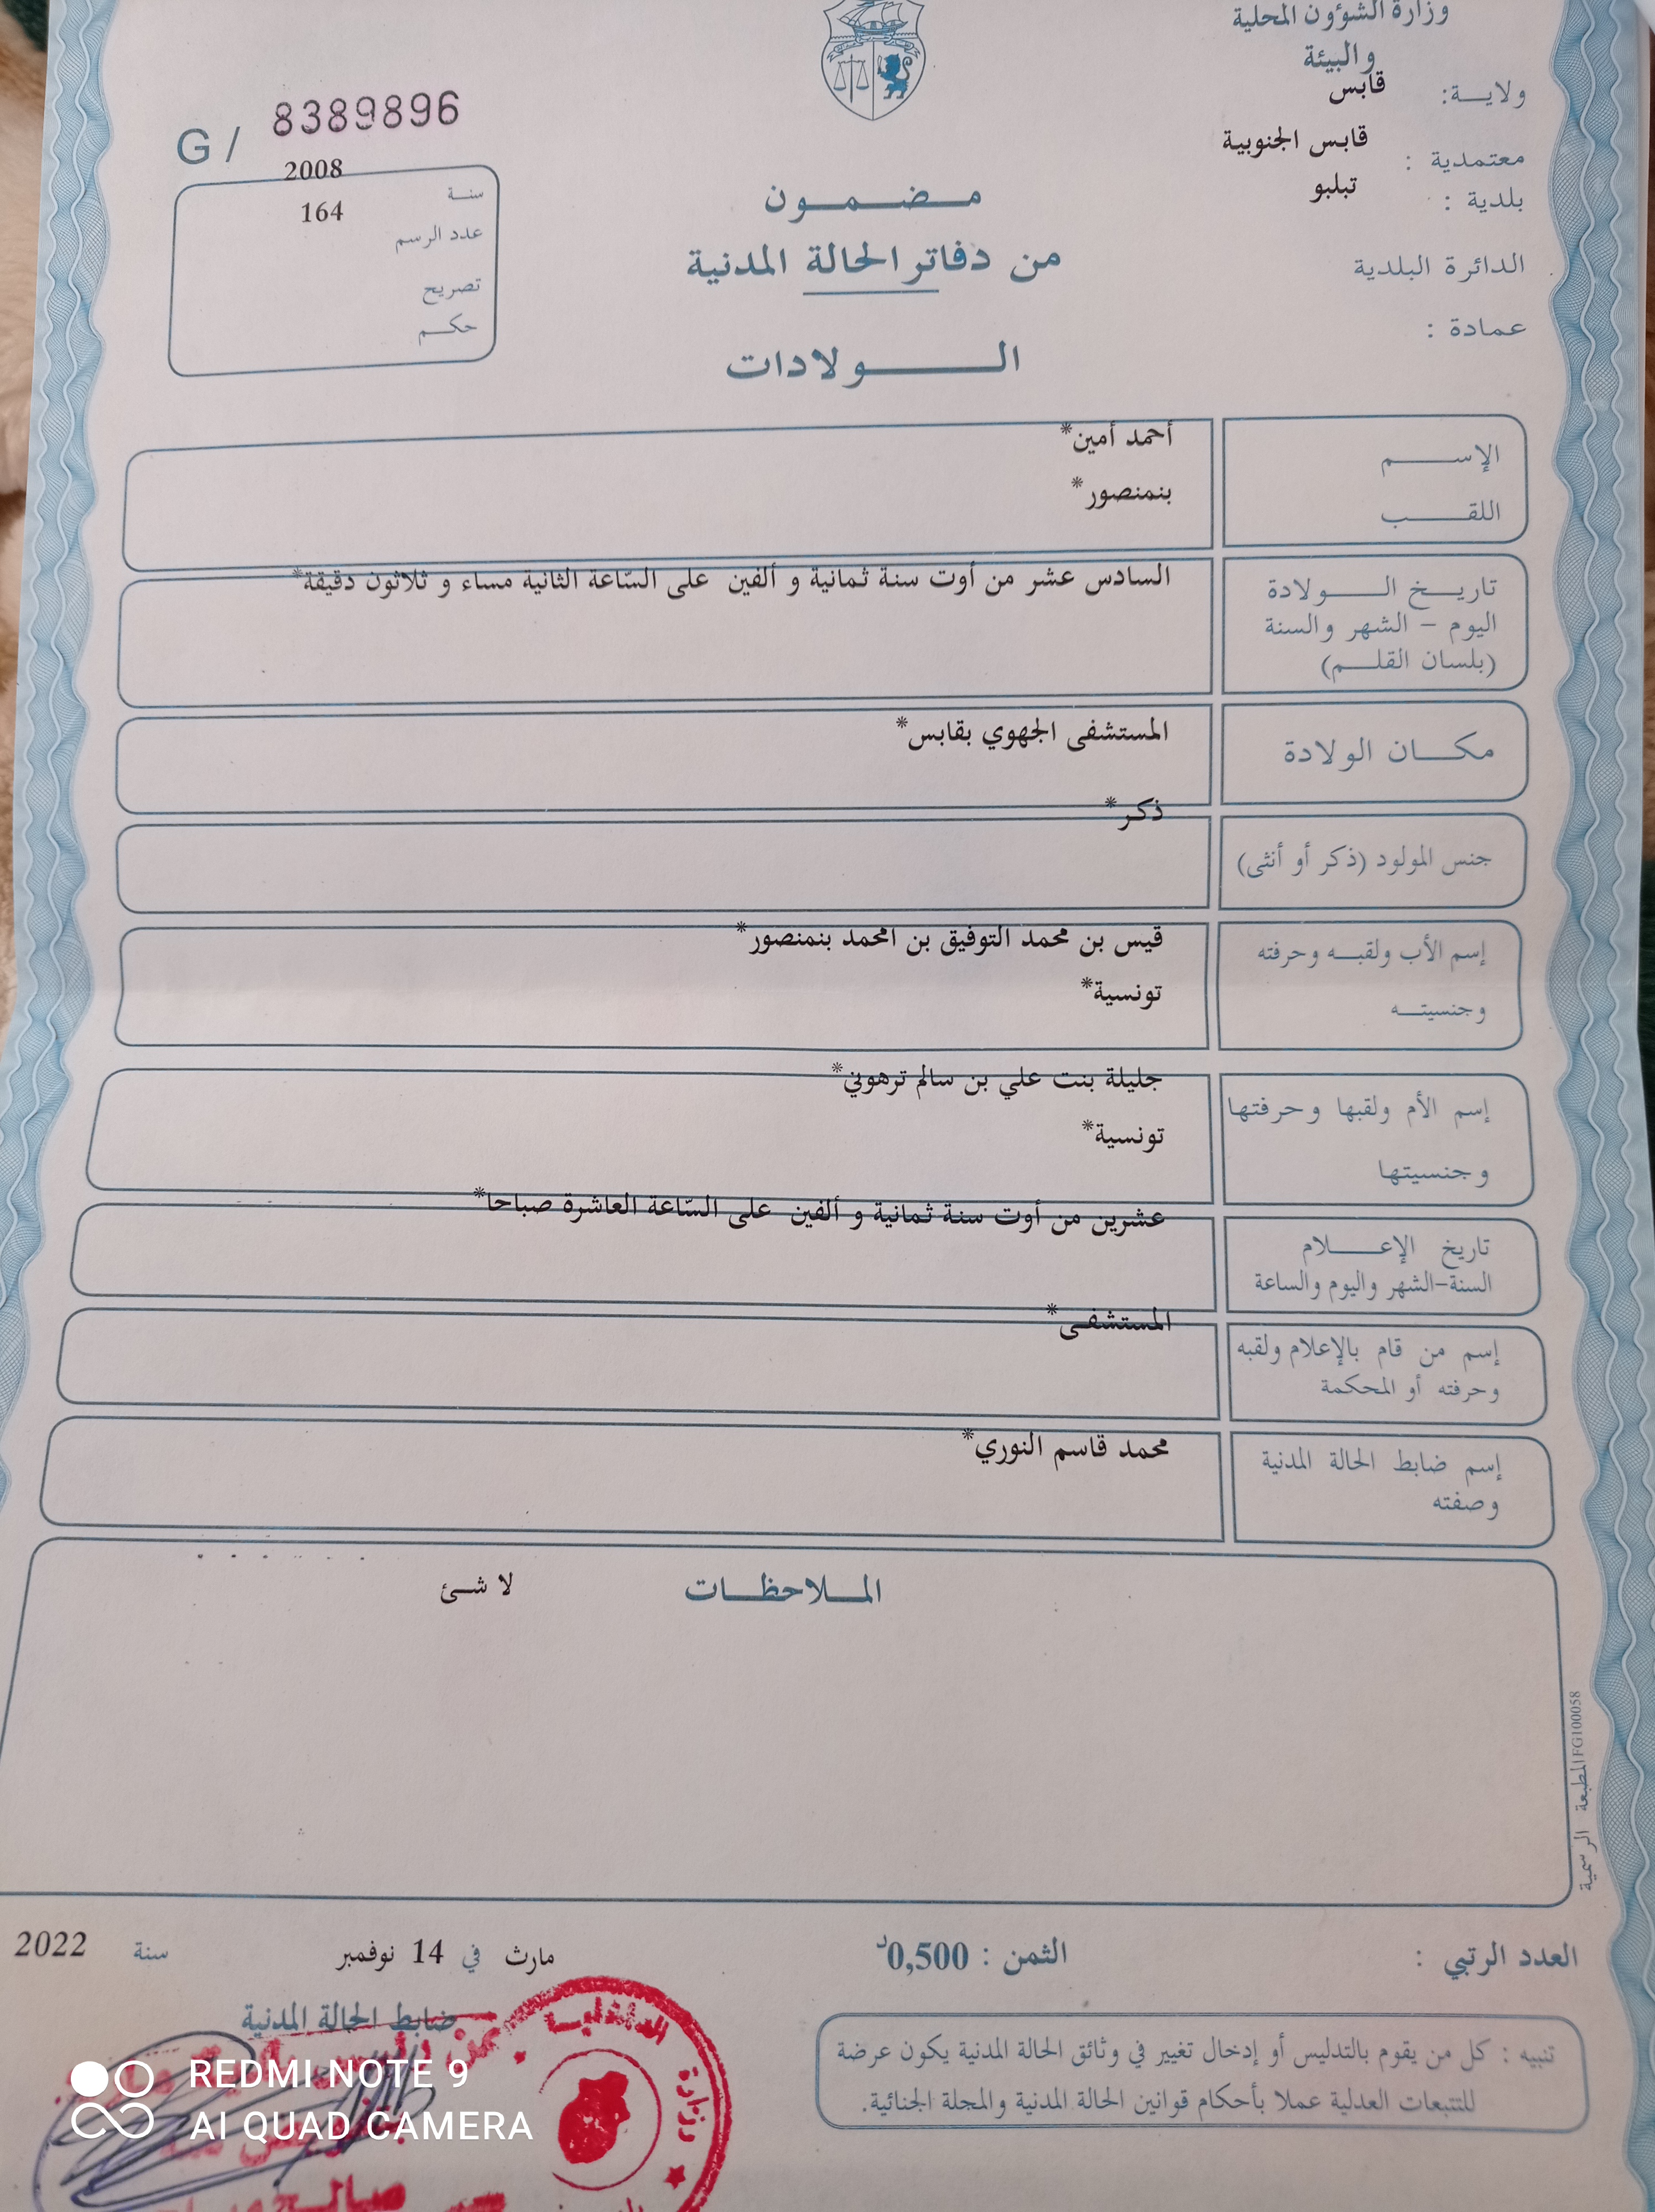 وزارة الشؤون المحلية
والبيئة
ولاية: قابس
معتمدية : قابس الجنوبية
بلدية : تبلبو
الدائرة البلدية
عمادة :
G / 8389896
سنة 2008
عدد الرسم 164
تصريح
حكم
مضمون
من دفاتر الحالة المدنية
الولادات
الإسم أحمد أمين*
اللقب بنمنصور*
تاريخ الولادة السادس عشر من أوت سنة ثمانية و ألفين على السّاعة الثانية مساء و ثلاثون دقيقة*
اليوم - الشهر والسنة
(بلسان القلم)
مكان الولادة المستشفى الجهوي بقابس*
جنس المولود (ذكر أو أنثى) ذكر*
إسم الأب ولقبه وحرفته قيس بن محمد التوفيق بن امحمد بنمنصور*
وجنسيته تونسية*
إسم الأم ولقبها وحرفتها جليلة بنت علي بن سالم ترهوني*
وجنسيتها تونسية*
تاريخ الإعلام عشرين من أوت سنة ثمانية و ألفين على السّاعة العاشرة صباحا*
السنة-الشهر واليوم والساعة
إسم من قام بالإعلام ولقبه المستشفى*
وحرفته أو المحكمة
إسم ضابط الحالة المدنية محمد قاسم النوري*
وصفته
الملاحظات لا شئ
المطبعة الرسمية FG100058
العدد الرتبي :
الثمن : 0,500د
مارث في 14 نوفمبر سنة 2022
ضابط الحالة المدنية
تنبيه : كل من يقوم بالتدليس أو إدخال تغيير في وثائق الحالة المدنية يكون عرضة
للتتبعات العدلية عملا بأحكام قوانين الحالة المدنية والمجلة الجنائية.
وزارة الداخلية
REDMI NOTE 9
AI QUAD CAMERA